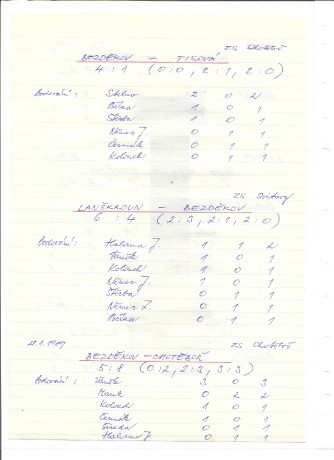 ZS Chotěboř
BEZDĚKOV - TISOVÁ
4 : 1 (0:0, 2:1, 2:0)
Bodování: 2 0 2
Pošva 1 0 1
Štěrba 1 0 1
Němec J. 0 1 1
Čermák 0 1 1
Kolouch 0 1 1
ZS Svitavy
LANŠKROUN - BEZDĚKOV
6 : 4 (2:3, 2:1, 2:0)
Bodování: Halama J. 1 1 2
Vaněk 1 0 1
Kolouch 1 0 1
Němec J. 1 0 1
Štěrba 0 1 1
Němec Z. 0 1 1
0 1 1
ZS Chotěboř
BEZDĚKOV - CHOTĚBOŘ
5:8 (0:2, 2:3, 3:3)
Bodování: Vaněk 3 0 3
0 2 2
Kolouch 1 0 1
Čermák 1 0 1
0 1 1
Halama J. 0 1 1